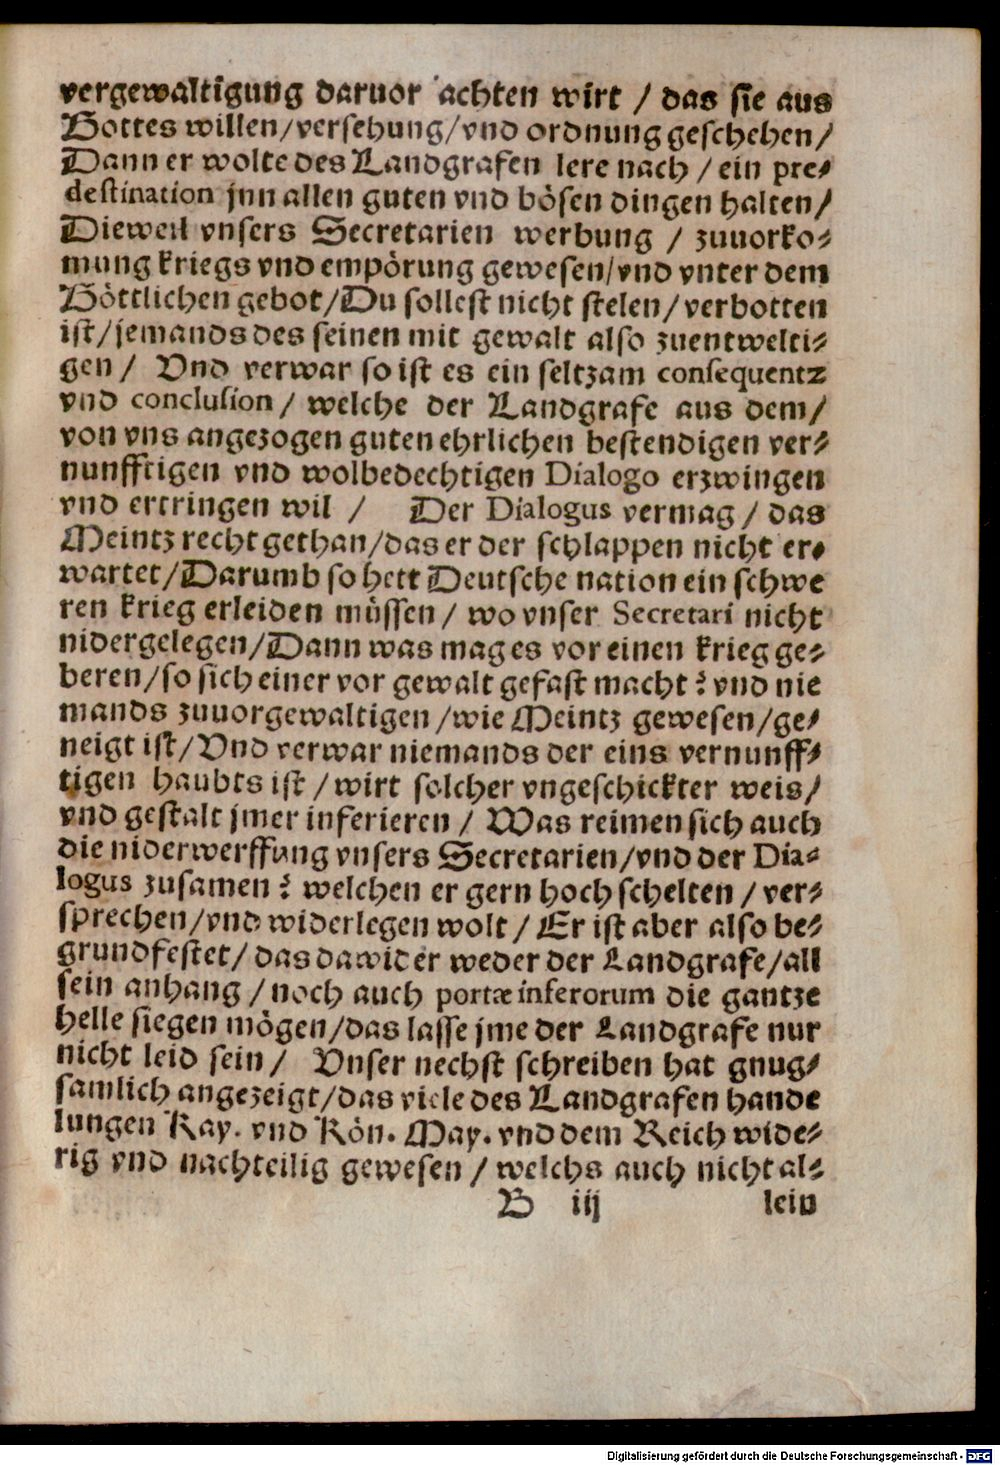 vergewaltigung daruor achten wirt / das sie aus
Gottes willen/versehung/vnd ordnung geschehen/
Dann er wolte des Landgrafen lere nach / ein pre-
destination jnn allen guten vnd bösen dingen halten/
Dieweil vnsers Secretarien werbung / zuuorko-
mung kriegs vnd empörung gewesen/vnd vnter dem
Göttlichen gebot/Du sollest nicht stelen/verbotten
ist/jemands des seinen mit gewalt also zuentwelti-
gen / Vnd verwar so ist es ein seltzam consequentz
vnd conclusion / welche der Landgrafe aus dem/
von vns angezogen guten ehrlichen bestendigen ver-
nunfftigen vnd wolbedechtigen Dialogo erzwingen
vnd ertringen wil / Der Dialogus vermag / das
Meintz recht gethan/das er der schlappen nicht er-
wartet/Darumb so hett Deutsche nation ein schwe
ren krieg erleiden müssen / wo vnser Secretari nicht
nidergelegen/Dann was mag es vor einen krieg ge-
beren/so sich einer vor gewalt gefast macht? vnd nie
mands zuuorgewaltigen /wie Meintz gewesen/ge-
neigt ist/Vnd verwar niemands der eins vernunff-
tigen haubts ist / wirt solcher vngeschickter weis/
vnd gestalt jmer inferieren / Was reimen sich auch
die niderwerffung vnsers Secretarien/vnd der Dia-
logus zusamen? welchen er gern hoch schelten / ver-
sprechen/vnd widerlegen wolt / Er ist aber also be-
grundfestet/das dawider weder der Landgrafe/all
sein anhang / noch auch portæ inferorum die gantze
helle siegen mögen/das lasse jme der Landgrafe nur
nicht leid sein / Vnser nechst schreiben hat gnug-
samlich angezeigt/das viele des Landgrafen hande
lungen Kay. vnd Kön. May. vnd dem Reich wide-
rig vnd nachteilig gewesen / welchs auch nicht al-
B iij lein
Digitalisierung gefördert durch die Deutsche Forschungsgemeinschaft - DFG